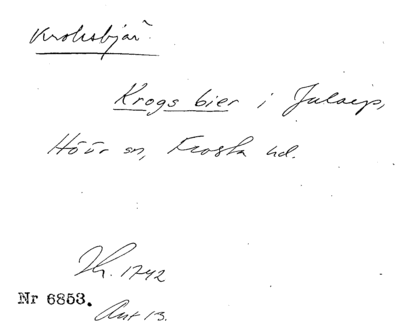 Kroksbjär
Krogs bier i Jularp,
Höör sn, Frosta hd.
Th. 1742
Nr 6853.
Ant 13.